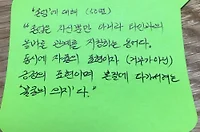 '본질'에 대해 (602)
"본질은 자신뿐만 아니라 타인과의
올바른 관계를 지향하는 용어다.
동시에 자존의 표현이자 (거부가 아닌)
긍정의 표현이며 본질에 다가서려는
'물음의 의지'다."